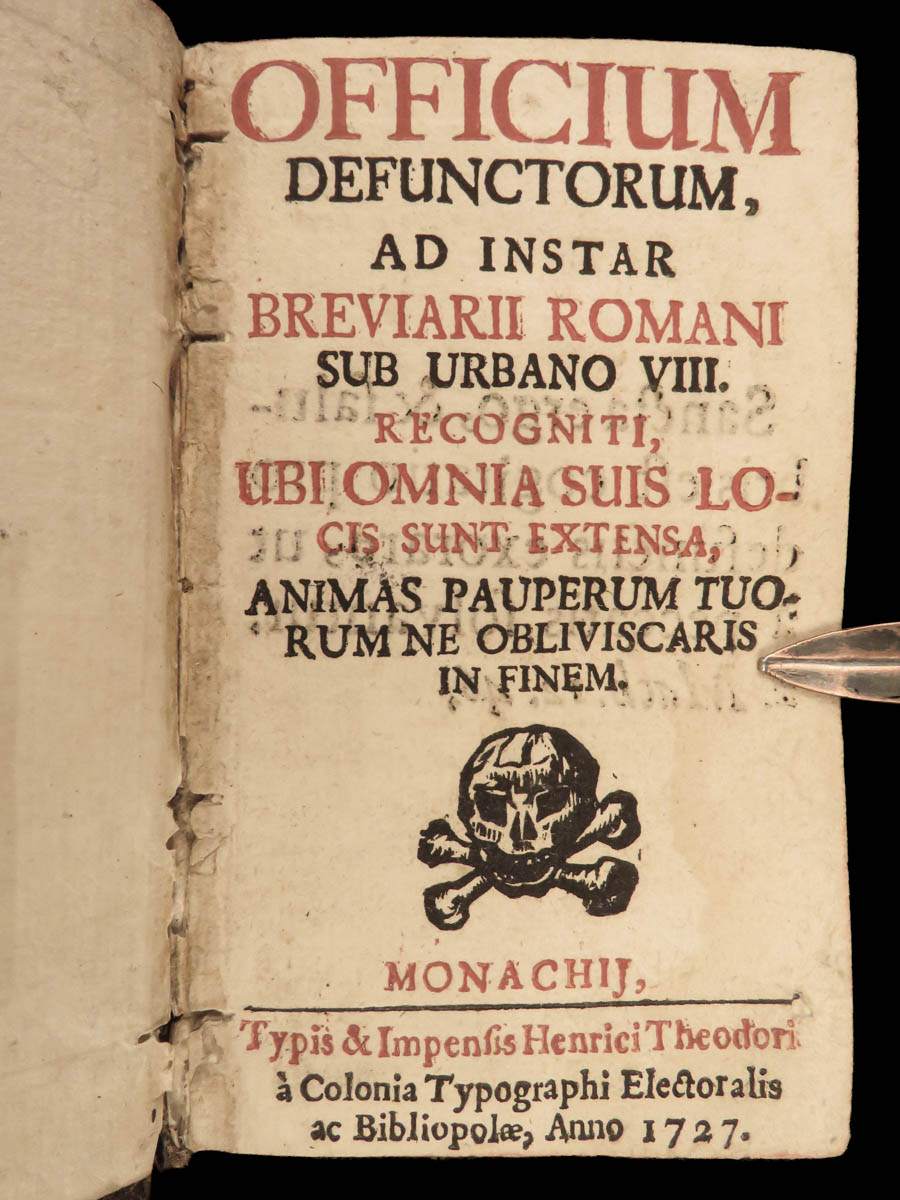 OFFICIUM
DEFUNCTORUM,
AD INSTAR
BREVIARII ROMANI
SUB URBANO VIII.
RECOGNITI,
UBI OMNIA SUIS LO-
CIS SUNT EXTENSA,
ANIMAS PAUPERUM TUO-
RUM NE OBLIVISCARIS
IN FINEM.
MONACHIJ,
Typis & Impensis Henrici Theodori
à Colonia Typographi Electoralis
ac Bibliopolæ, Anno 1727.